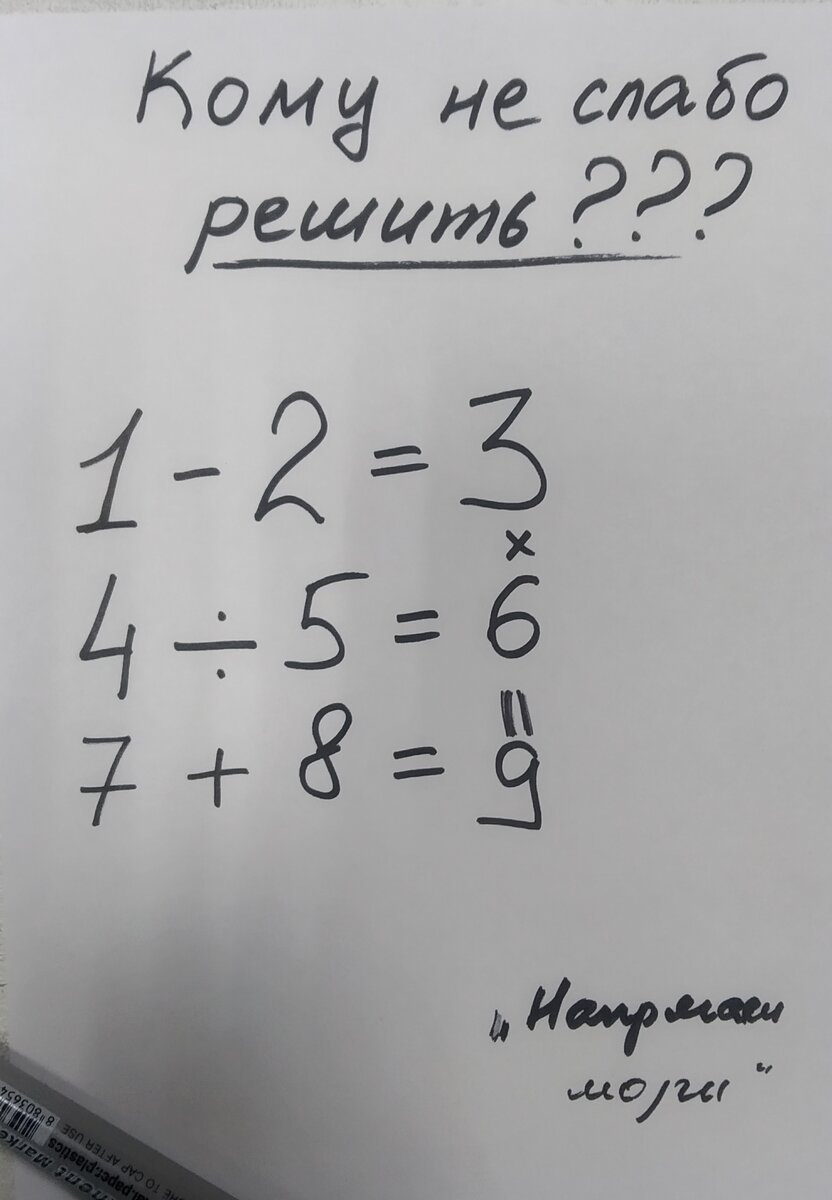 Кому не слабо
решить???
1 - 2 = 3
×
4 ÷ 5 = 6
=
7 + 8 = 9
„Напрягаем
мозги“
8"803654
TO CAP AFTER USE
paper,plastics